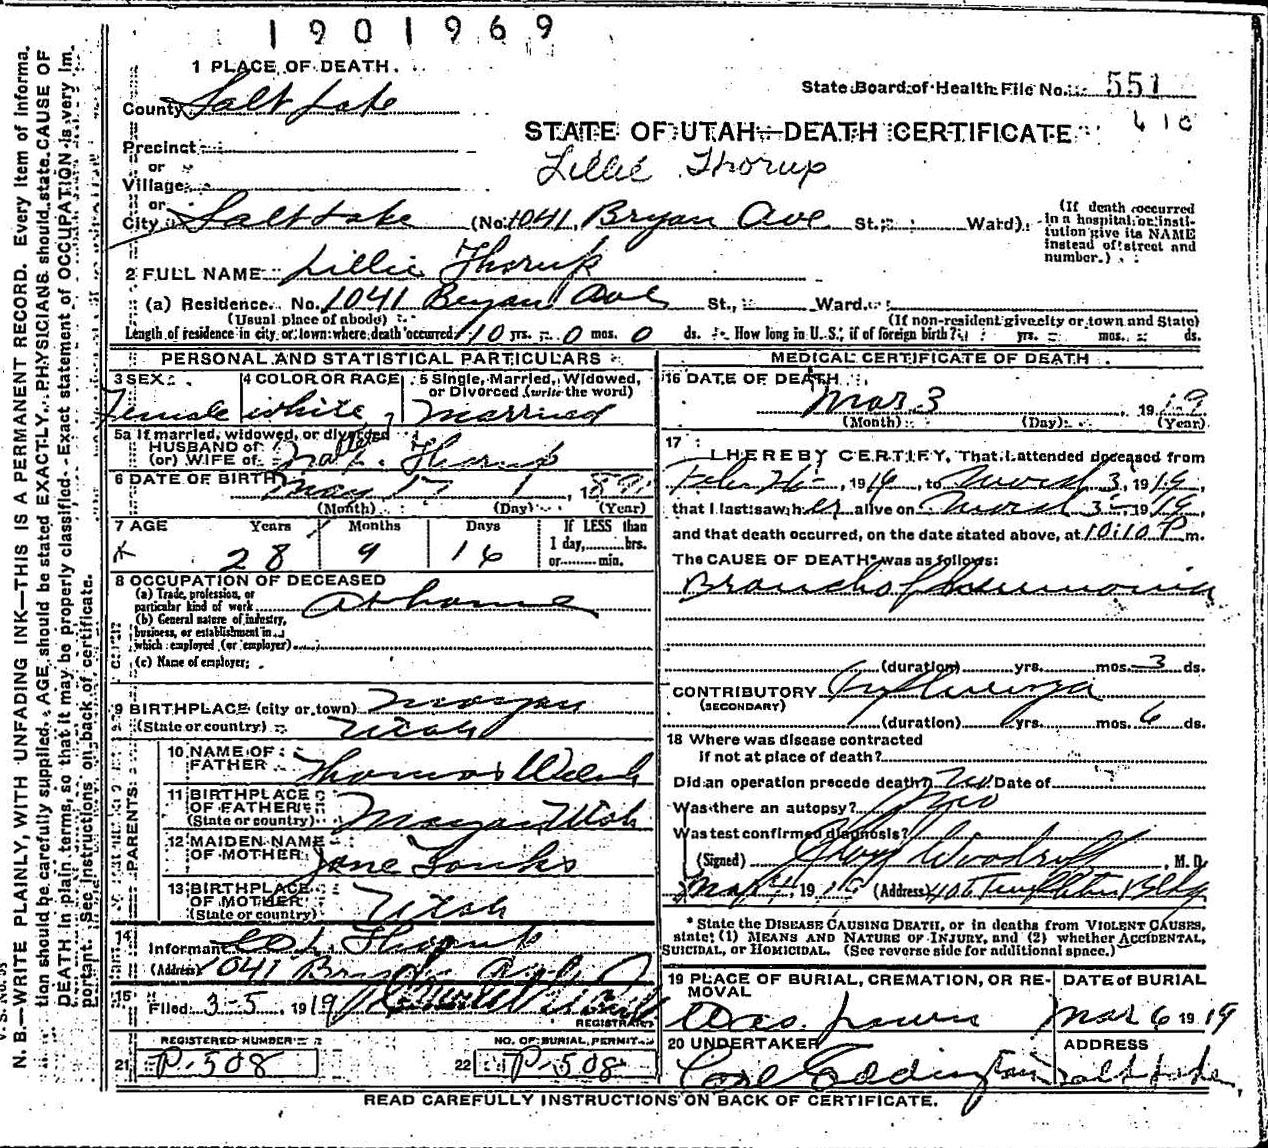 1901969
1 PLACE OF DEATH.
State Board of Health File No. 551
County Salt Lake
410
STATE OF UTAH—DEATH CERTIFICATE
Precinct
Lillie Thorup
or
Village
or
City Salt Lake (No. 1041, Bryan Ave St.; Ward)
(If death occurred in a hospital or institution give its NAME instead of street and number.)
2 FULL NAME Lillie Thorup
(a) Residence. No. 1041 Bryan Ave St., Ward.
(Usual place of abode) (If non-resident give city or town and State)
Length of residence in city or town where death occurred 10 yrs. 0 mos. 0 ds. How long in U. S., if of foreign birth? yrs. mos. ds.
PERSONAL AND STATISTICAL PARTICULARS
3 SEX 4 COLOR OR RACE 5 Single, Married, Widowed,
or Divorced (write the word)
Female white married
5a If married, widowed, or divorced
HUSBAND of
(or) WIFE of Thorup
6 DATE OF BIRTH May 17 1, 1891
(Month) (Day) (Year)
7 AGE Years Months Days If LESS than
1 day,........hrs.
or........min.
28 9 16
8 OCCUPATION OF DECEASED
(a) Trade, profession, or
particular kind of work At home
(b) General nature of industry,
business, or establishment in
which employed (or employer)
(c) Name of employer
9 BIRTHPLACE (city or town) Morgan
(State or country) Utah
PARENTS
10 NAME OF
FATHER Thomas Welsh
11 BIRTHPLACE
OF FATHER
(State or country) Morgan Utah
12 MAIDEN NAME
OF MOTHER Jane
13 BIRTHPLACE
OF MOTHER
(State or country) Utah
14
Informant Thorup
(Address) 1041 Bryan Ave
15
Filed 3-5, 1919
REGISTRAR
REGISTERED NUMBER NO. OF BURIAL PERMIT
21 P-508 22 P-508
MEDICAL CERTIFICATE OF DEATH
16 DATE OF DEATH
Mar 3, 1919
(Month) (Day) (Year)
17
I HEREBY CERTIFY, That I attended deceased from
Feb 26, 1919, to March 3, 1919,
that I last saw her alive on March 3, 1919,
and that death occurred, on the date stated above, at 10:10 P m.
The CAUSE OF DEATH* was as follows:
Broncho Pneumonia
(duration) yrs. mos. 3 ds.
CONTRIBUTORY Influenza
(SECONDARY)
(duration) yrs. mos. 6 ds.
18 Where was disease contracted
if not at place of death?
Did an operation precede death? no Date of
Was there an autopsy? no
Was test confirmed diagnosis?
(Signed) Woodruff, M. D.
Mar 4, 1919 (Address) 406 Templeton Bldg
* State the DISEASE CAUSING DEATH, or in deaths from VIOLENT CAUSES,
state (1) MEANS AND NATURE OF INJURY, and (2) whether ACCIDENTAL,
SUICIDAL, or HOMICIDAL. (See reverse side for additional space.)
19 PLACE OF BURIAL, CREMATION, OR RE-
MOVAL
DATE of BURIAL
Lawn Mar 6 1919
20 UNDERTAKER ADDRESS
Eddington Salt Lake
READ CAREFULLY INSTRUCTIONS ON BACK OF CERTIFICATE.
N. B.—WRITE PLAINLY, WITH UNFADING INK—THIS IS A PERMANENT RECORD. Every item of informa-
tion should be carefully supplied. AGE should be stated EXACTLY. PHYSICIANS should state CAUSE OF
DEATH in plain terms, so that it may be properly classified. Exact statement of OCCUPATION is very im-
portant. See instructions on back of certificate.